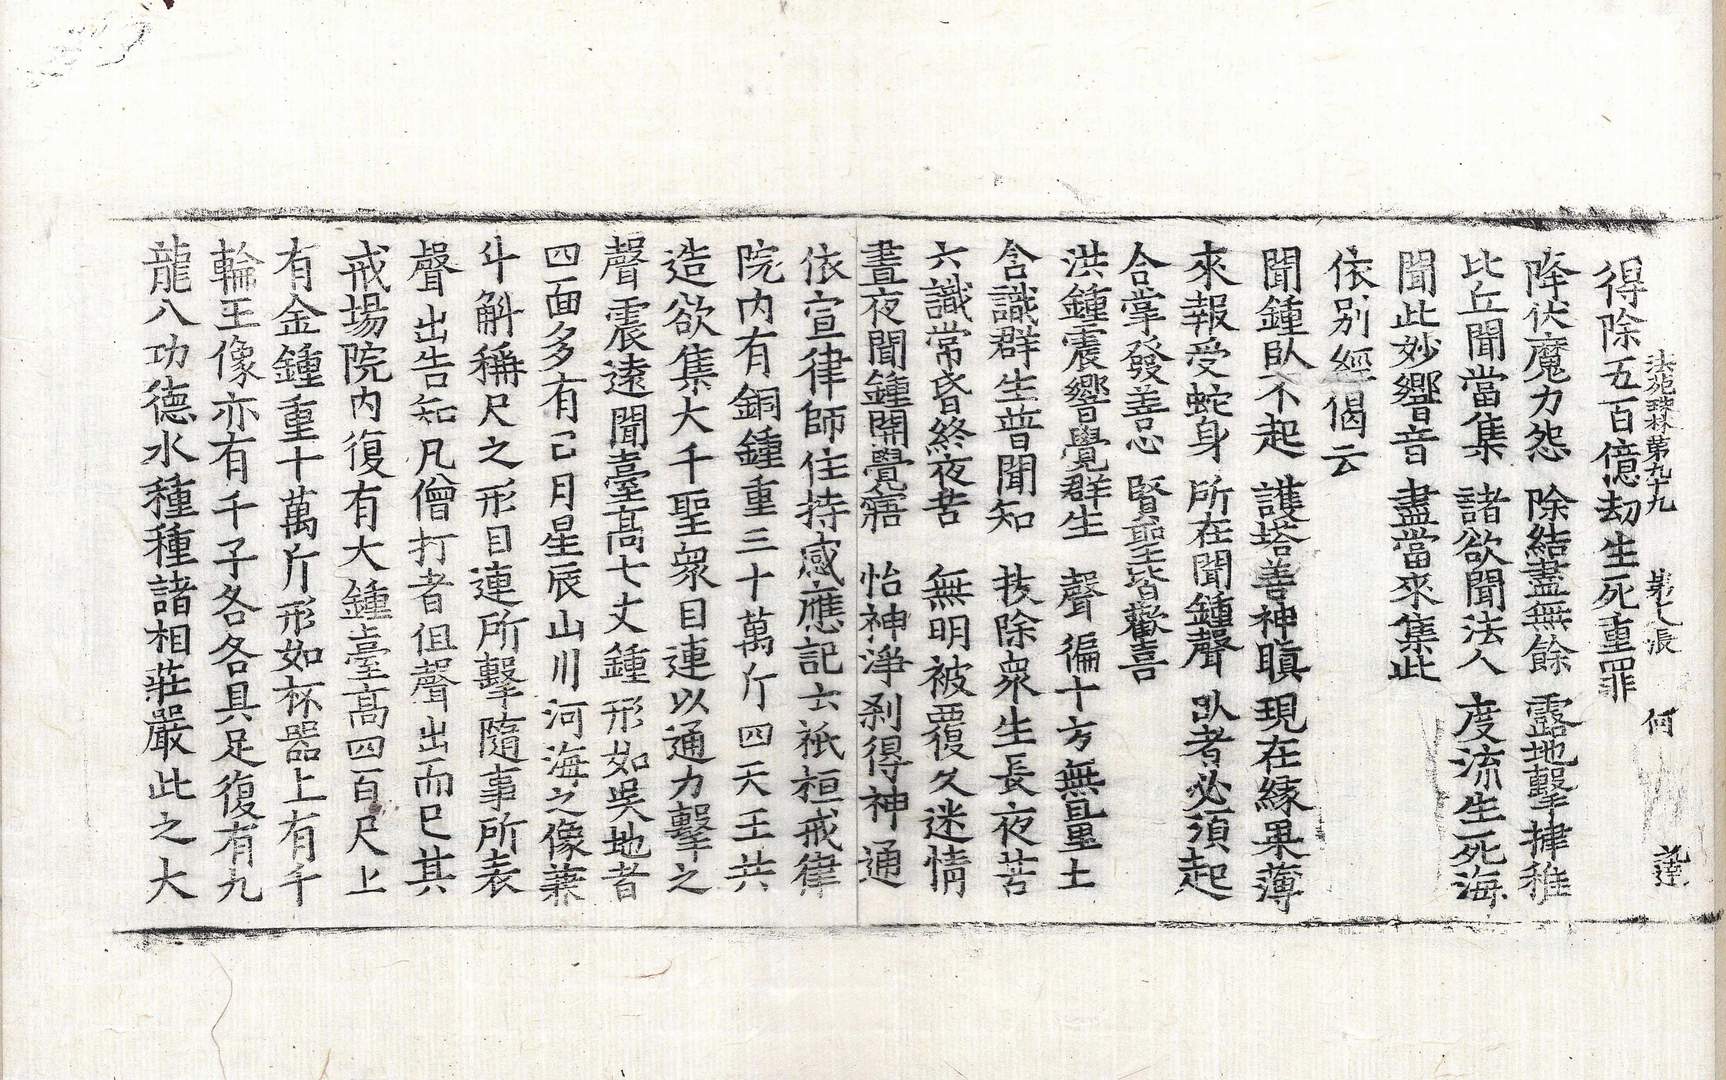 法苑珠林第九十九 第七張 何
得除五百億劫生死重罪
降伏魔力怨 除結盡無餘 露地擊揵稚
比丘聞當集 諸欲聞法人 度流生死海
聞此妙響音 盡當來集此
依別經偈云
聞鍾臥不起 護塔善神瞋 現在緣果薄
來報受蛇身 所在聞鍾聲 臥者必須起
合掌發善心 賢聖皆歡喜
洪鍾震響覺群生 聲徧十方無量土
含識群生普聞知 拔除衆生長夜苦
六識常昏終夜苦 無明被覆久迷情
晝夜聞鍾開覺寤 怡神淨刹得神通
依宣律師住持感應記云祇桓戒律
院内有銅鍾重三十萬斤四天王共
造欲集大千聖衆目連以通力擊之
聲震遠聞臺高七丈鍾形如吳地者
四面多有日月星辰山川河海之像兼
斗斛稱尺之形目連所擊隨事所表
聲出告知凡僧打者但聲出而已其
戒場院内復有大鍾臺高四百尺上
有金鍾重十萬斤形如杯器上有千
輪王像亦有千子各各具足復有九
龍八功德水種種諸相莊嚴此之大